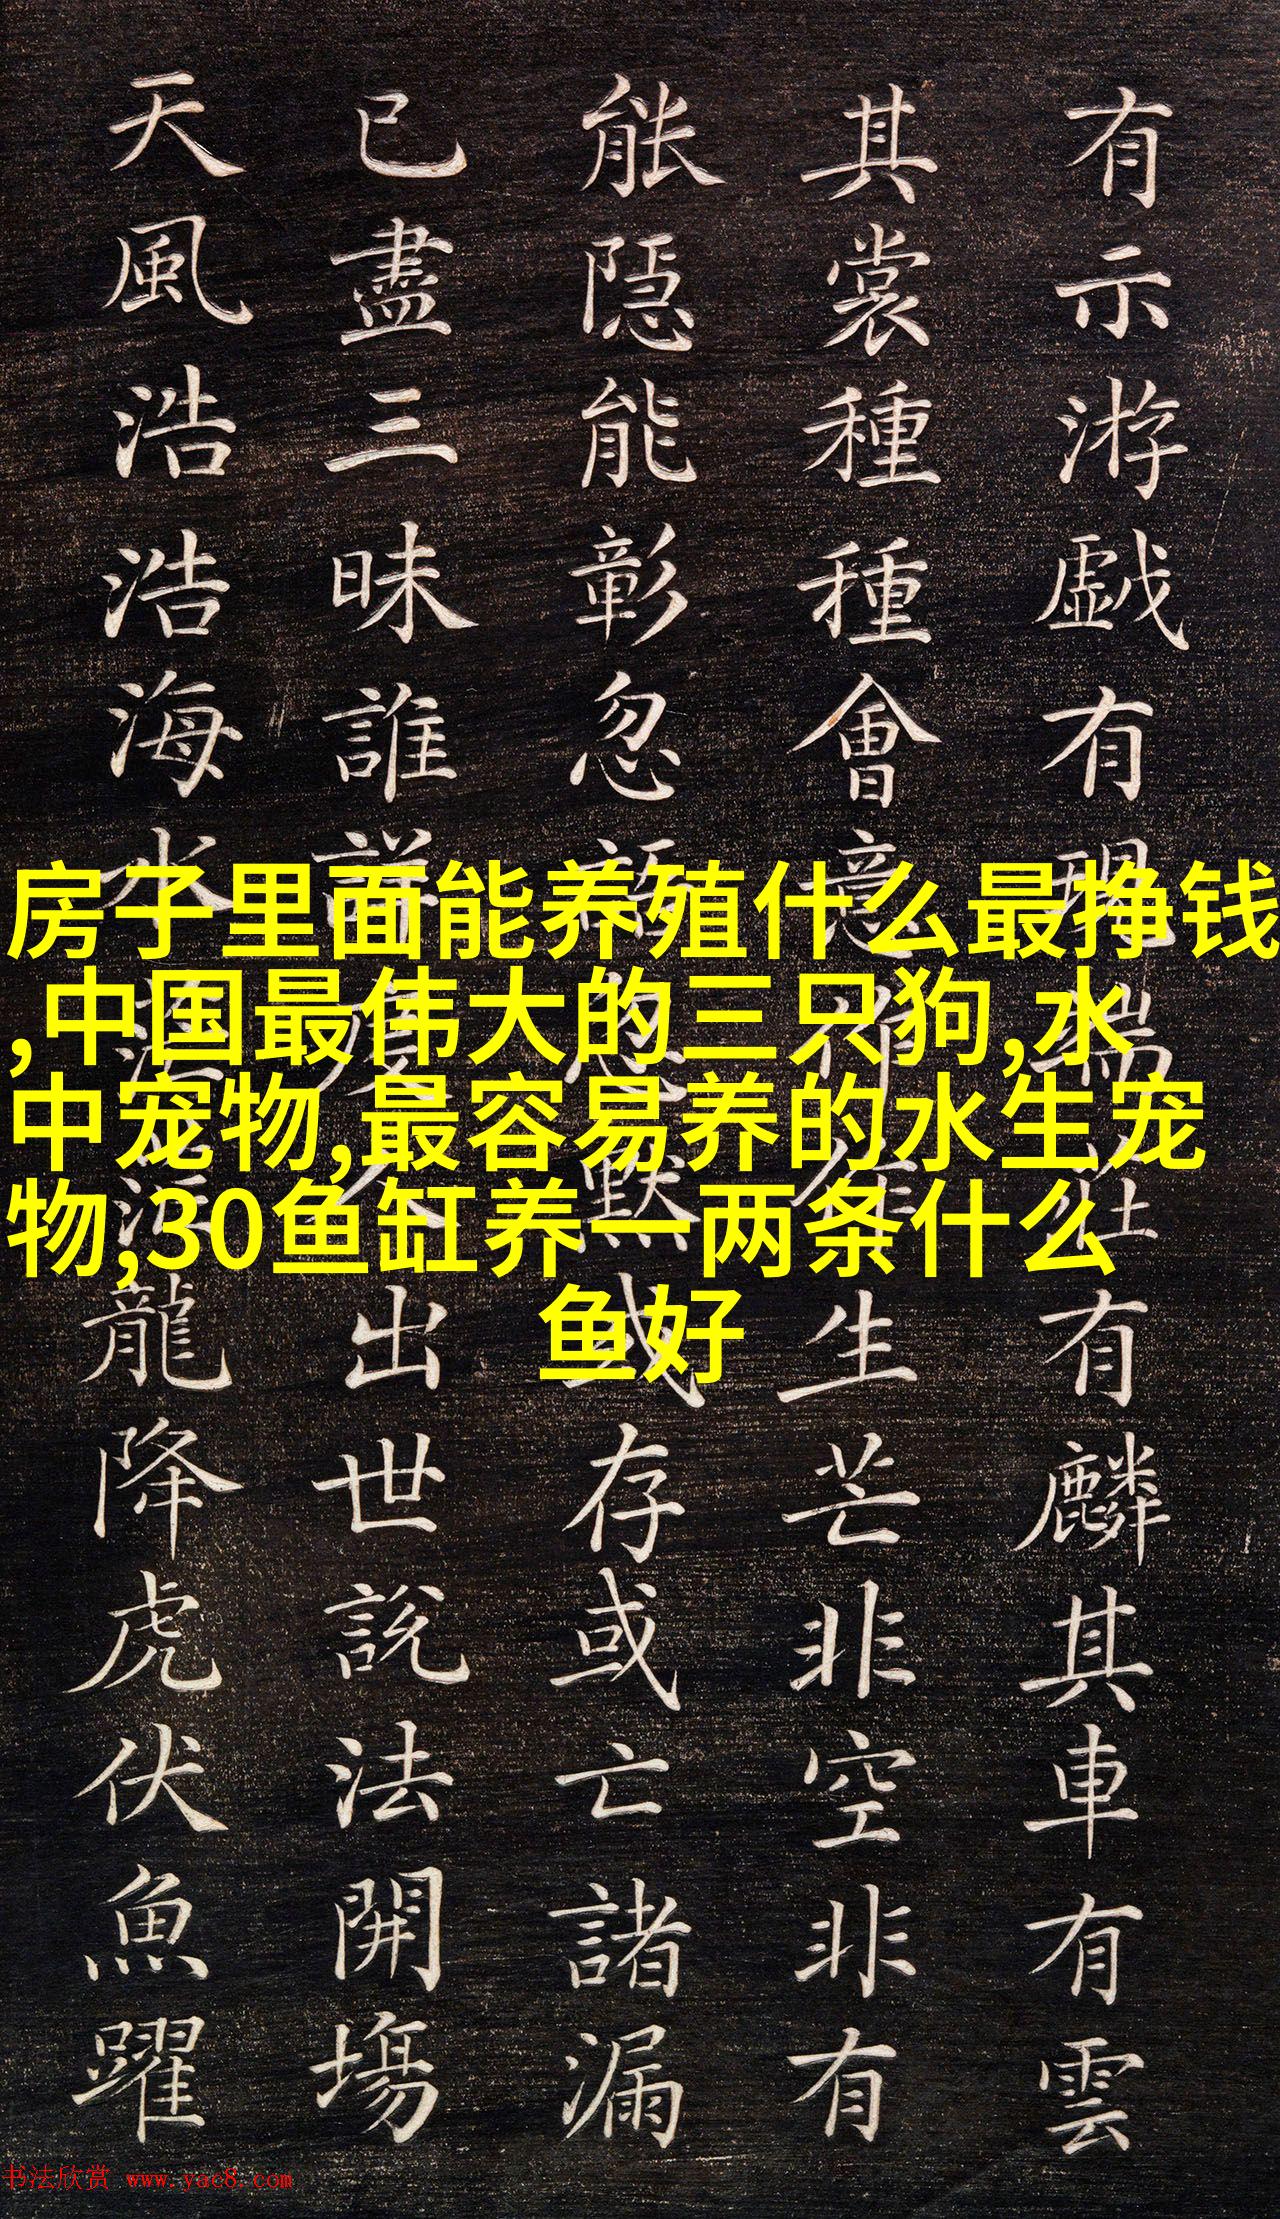 有示游戯有現端有麟其車有雲
其裳種種會意作生芒非空非有
能隱能彰忽語忽默或存或亡諸漏
已盡三昧誰詳人出世說法開場
天風浩浩海水龍降虎伏魚躍
房子里面能养殖什么最挣钱
,中国最伟大的三只狗,水
中宠物,最容易养的水生宠
物,30鱼缸养一两条什么
鱼好
书法欣赏 www.yac8.com